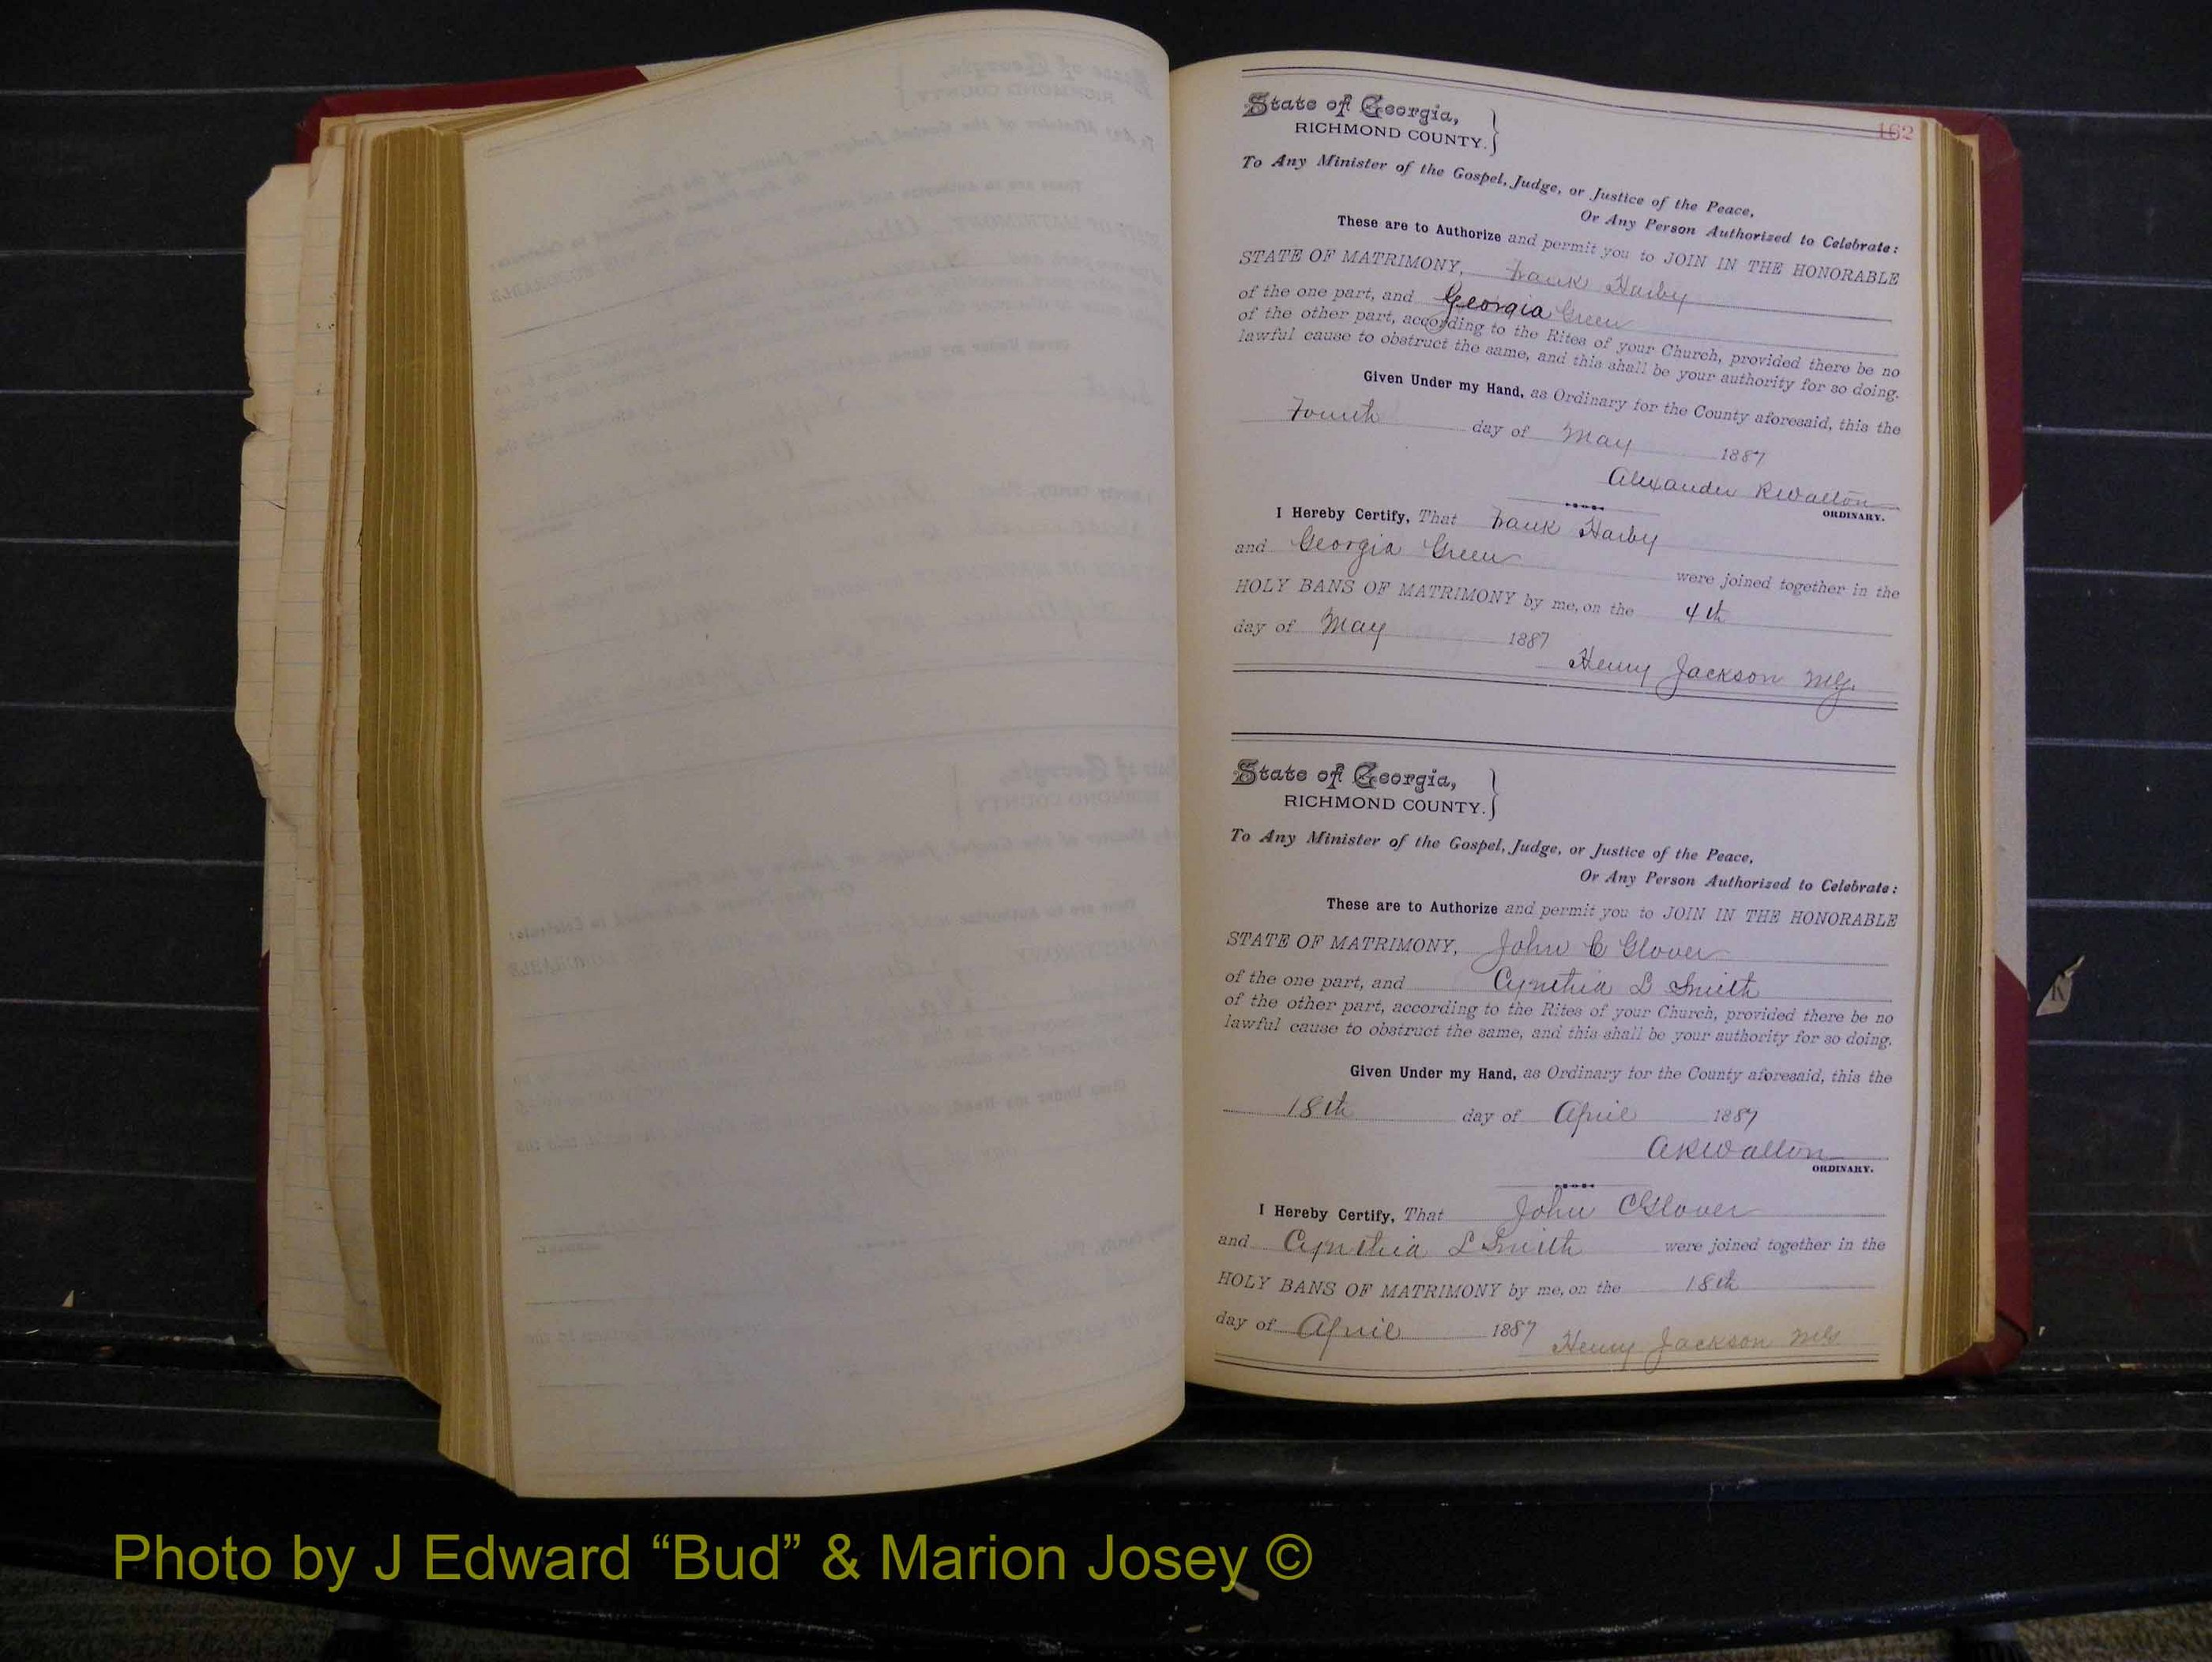 162
State of Georgia,
RICHMOND COUNTY.
To Any Minister of the Gospel, Judge, or Justice of the Peace,
Or Any Person Authorized to Celebrate:
These are to Authorize and permit you to JOIN IN THE HONORABLE
STATE OF MATRIMONY, Frank Harby
of the one part, and Georgia Green
of the other part, according to the Rites of your Church, provided there be no
lawful cause to obstruct the same, and this shall be your authority for so doing.
Given Under my Hand, as Ordinary for the County aforesaid, this the
Fourth day of May 1887
Alexander R Walton
ORDINARY.
I Hereby Certify, That Frank Harby
and Georgia Green were joined together in the
HOLY BANS OF MATRIMONY by me, on the 4th
day of May 1887
Henry Jackson MG.
State of Georgia,
RICHMOND COUNTY.
To Any Minister of the Gospel, Judge, or Justice of the Peace,
Or Any Person Authorized to Celebrate:
These are to Authorize and permit you to JOIN IN THE HONORABLE
STATE OF MATRIMONY, John C Glover
of the one part, and Cynthia L Smith
of the other part, according to the Rites of your Church, provided there be no
lawful cause to obstruct the same, and this shall be your authority for so doing.
Given Under my Hand, as Ordinary for the County aforesaid, this the
18th day of April 1887
A R Walton
ORDINARY.
I Hereby Certify, That John C Glover
and Cynthia L Smith were joined together in the
HOLY BANS OF MATRIMONY by me, on the 18th
day of April 1887 Henry Jackson MG
Photo by J Edward “Bud” & Marion Josey ©